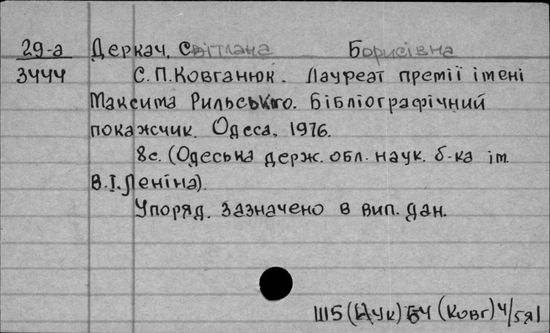 29-а Деркач, Світлана Борисівна
3444 С. П. Ковганюк. Лауреат премії імені
Максима Рильського. Бібліографічний
покажчик. Одеса, 1976.
8с. (Одеська держ. обл. наук. б-ка ім.
В.І.Леніна).
Упоряд. зазначено в вип. дан.
Ш5(Ук) (Ковг)4/591